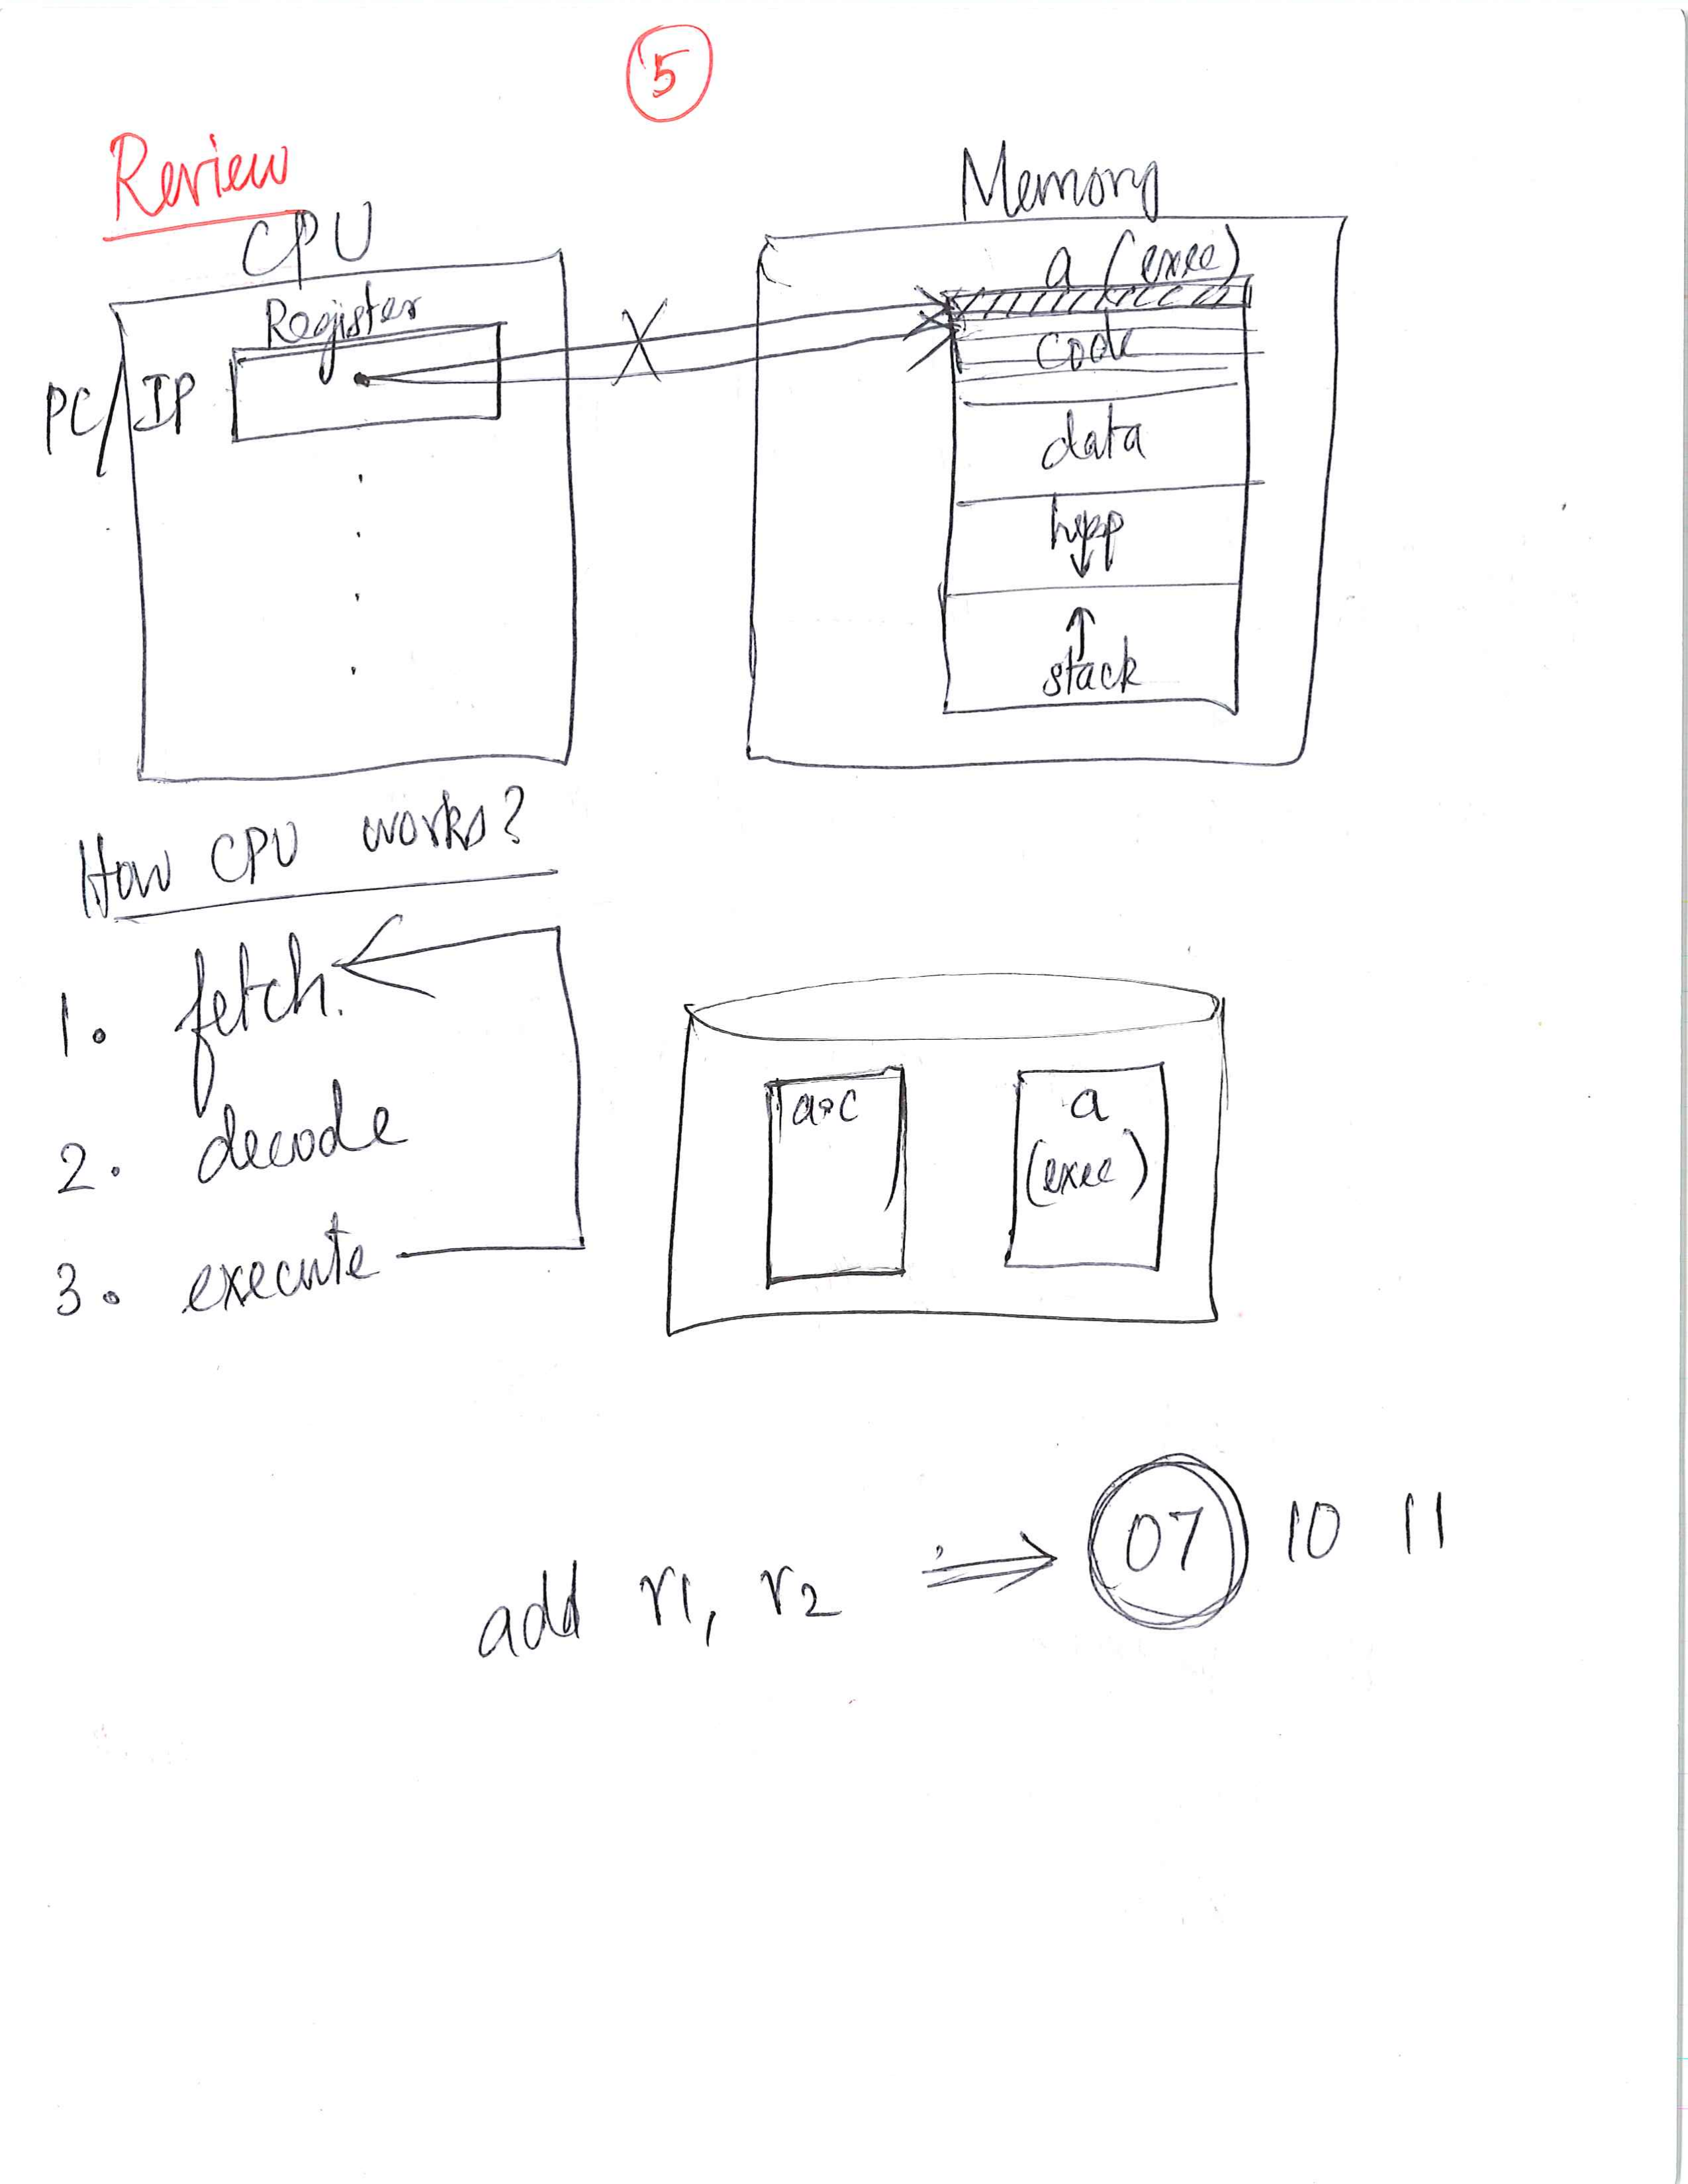 5
Review
CPU
Register
PC/IP
Memory
a (exec)
code
data
heap
stack
How CPU works?
1. fetch.
2. decode
3. execute
a.c
a
(exec)
add r1, r2 ⇒ 07 10 11